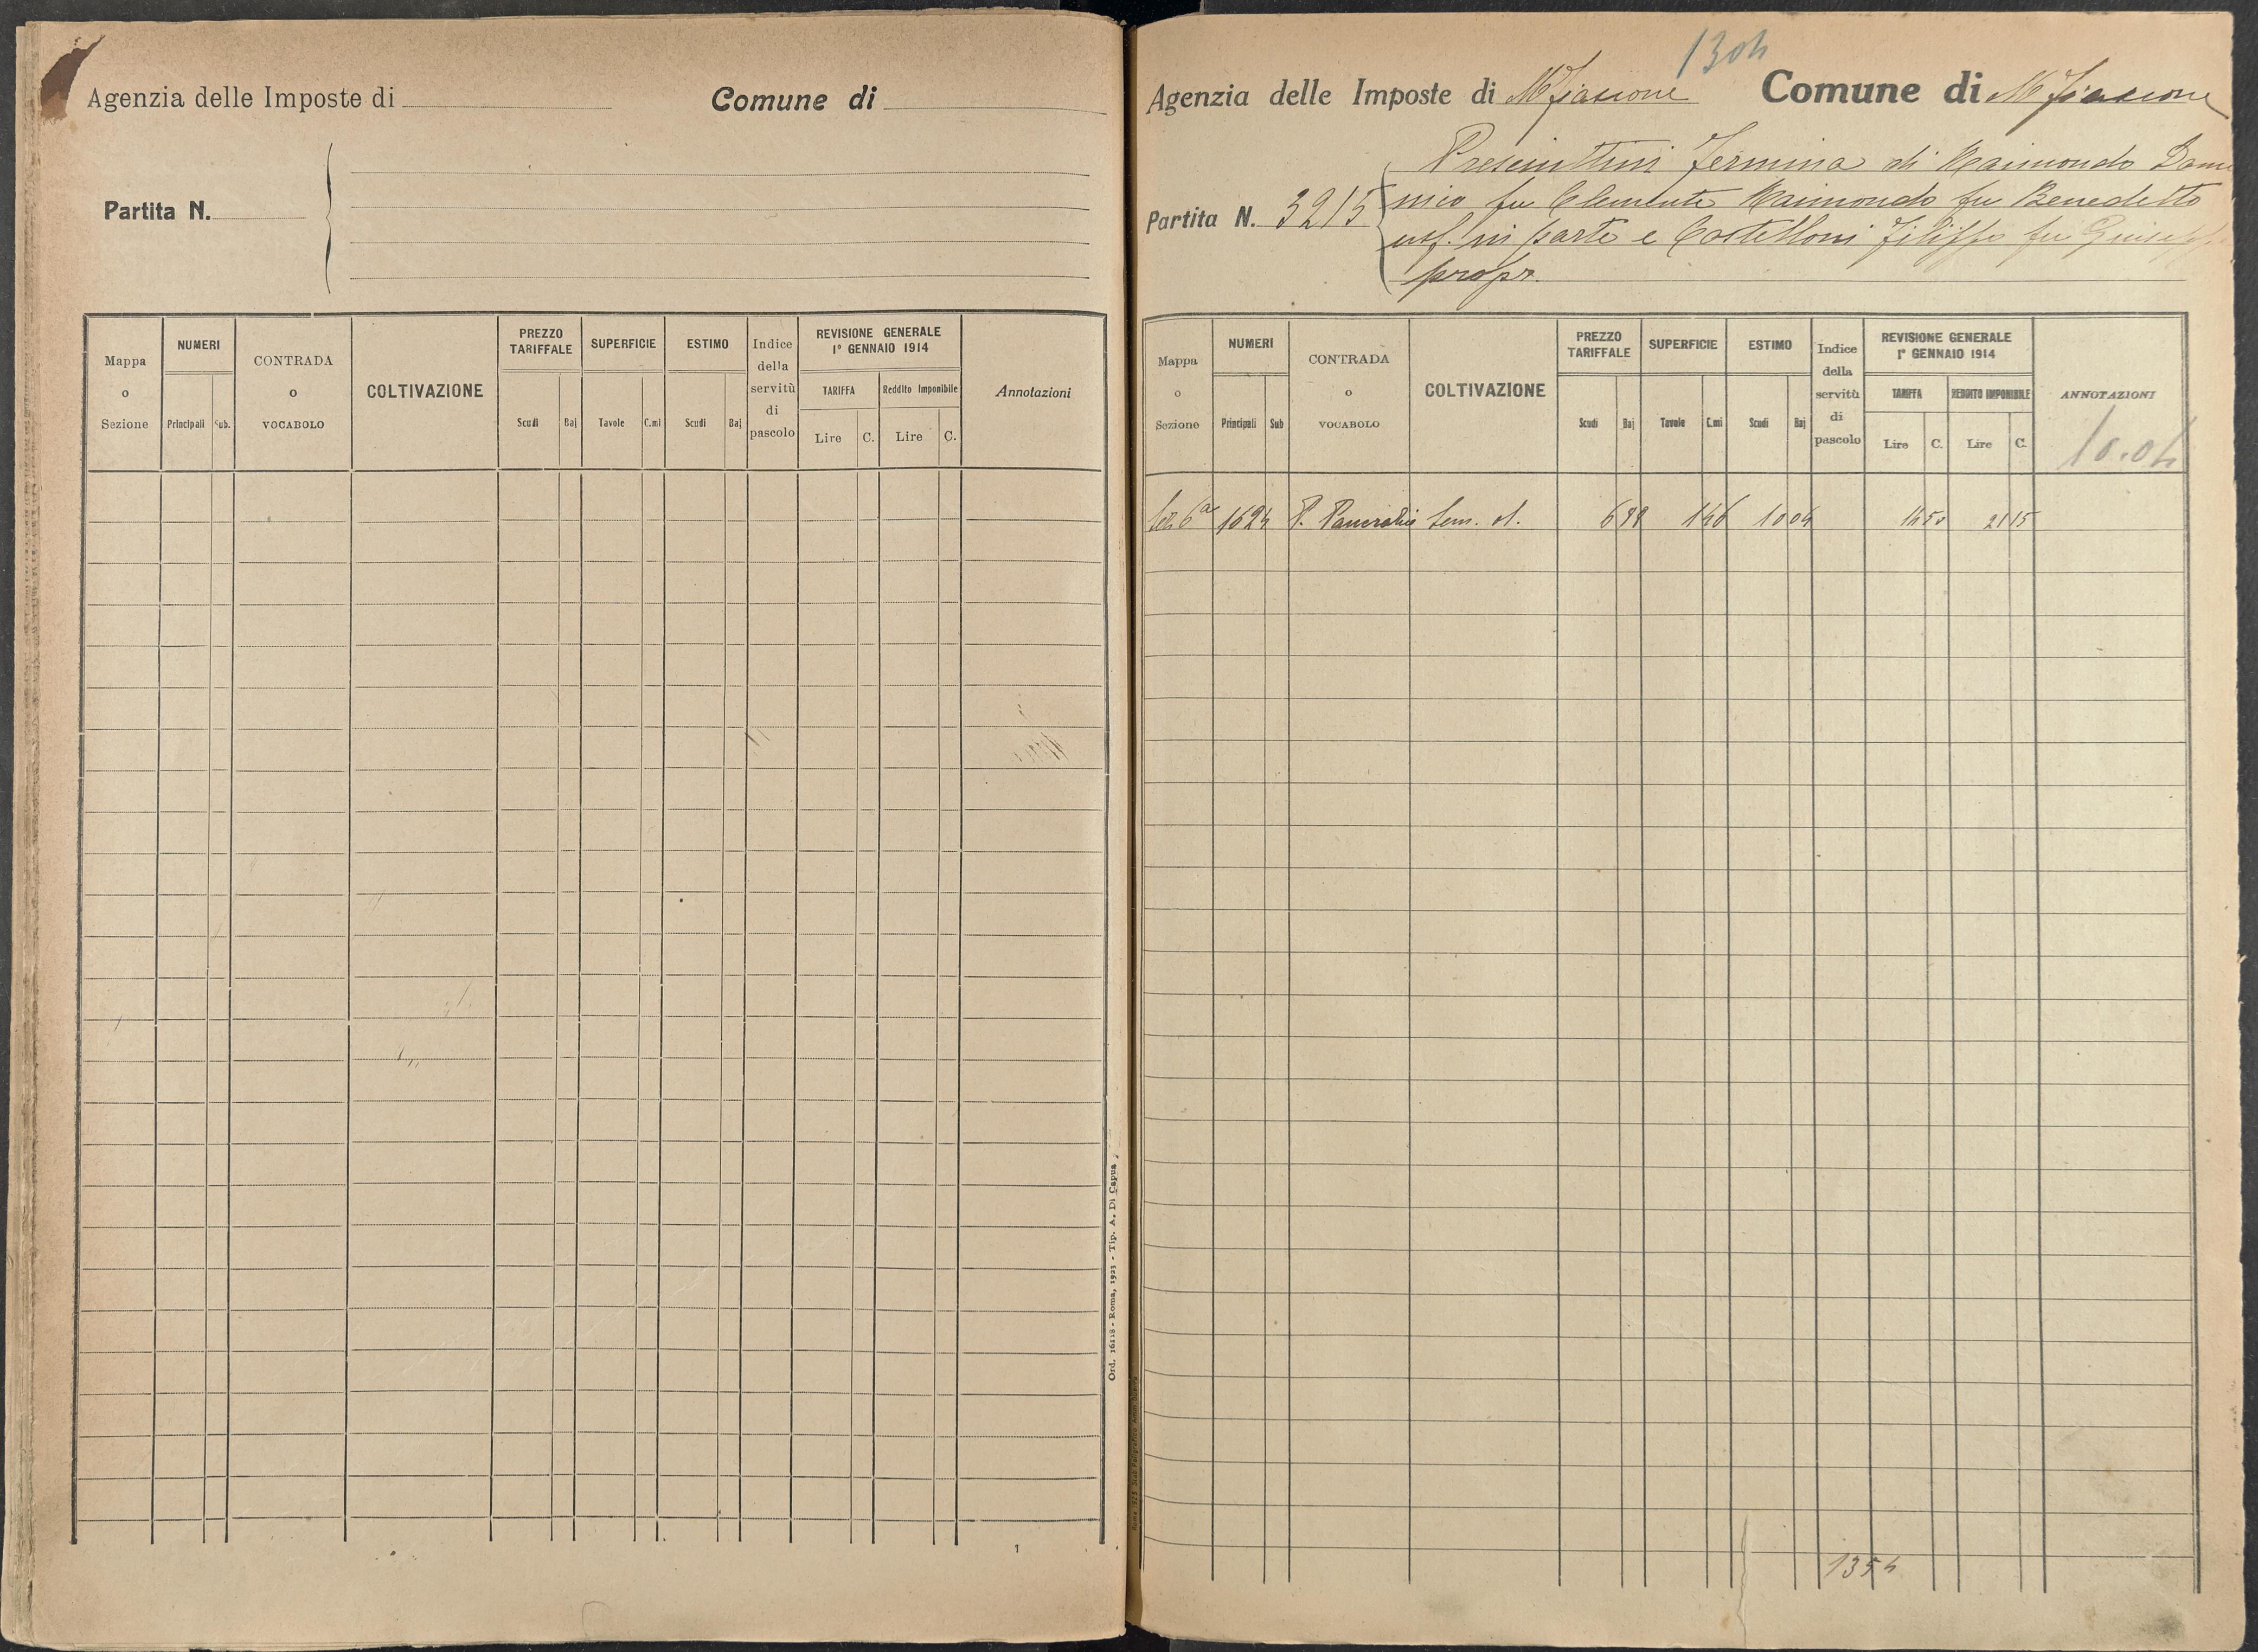 Agenzia delle Imposte di
Comune di
Partita N.
Mappa o Sezione
NUMERI
Principali
Sub.
CONTRADA o VOCABOLO
COLTIVAZIONE
PREZZO TARIFFALE
Scudi
Baj
SUPERFICIE
Tavole
C.mi
ESTIMO
Scudi
Baj
Indice della servitù di pascolo
REVISIONE GENERALE
1° GENNAIO 1914
TARIFFA
Reddito Imponibile
Lire
C.
Lire
C.
Annotazioni
Ord. 16118 - Roma, 1923 - Tip. A. Di Capua
1
1304
Agenzia delle Imposte di M Fiascone
Comune di M Fiascone
Partita N. 3215
Presciuttini Fermina di Raimondo Dome
nico fu Clemente Raimondo fu Benedetto
usf. in parte e Castelloni Filippo fu Giuseppe
propr.
Mappa o Sezione
NUMERI
Principali
Sub
CONTRADA o VOCABOLO
COLTIVAZIONE
PREZZO TARIFFALE
Scudi
Baj
SUPERFICIE
Tavole
C.mi
ESTIMO
Scudi
Baj
Indice della servitù di pascolo
REVISIONE GENERALE
1° GENNAIO 1914
TARIFFA
REDDITO IMPONIBILE
Lire
C.
Lire
C.
ANNOTAZIONI
10.04
Sez 6a 1624 P. Pancrazio Sem. ol. 6 88 1 46 10 04 14 50 21 15
1354